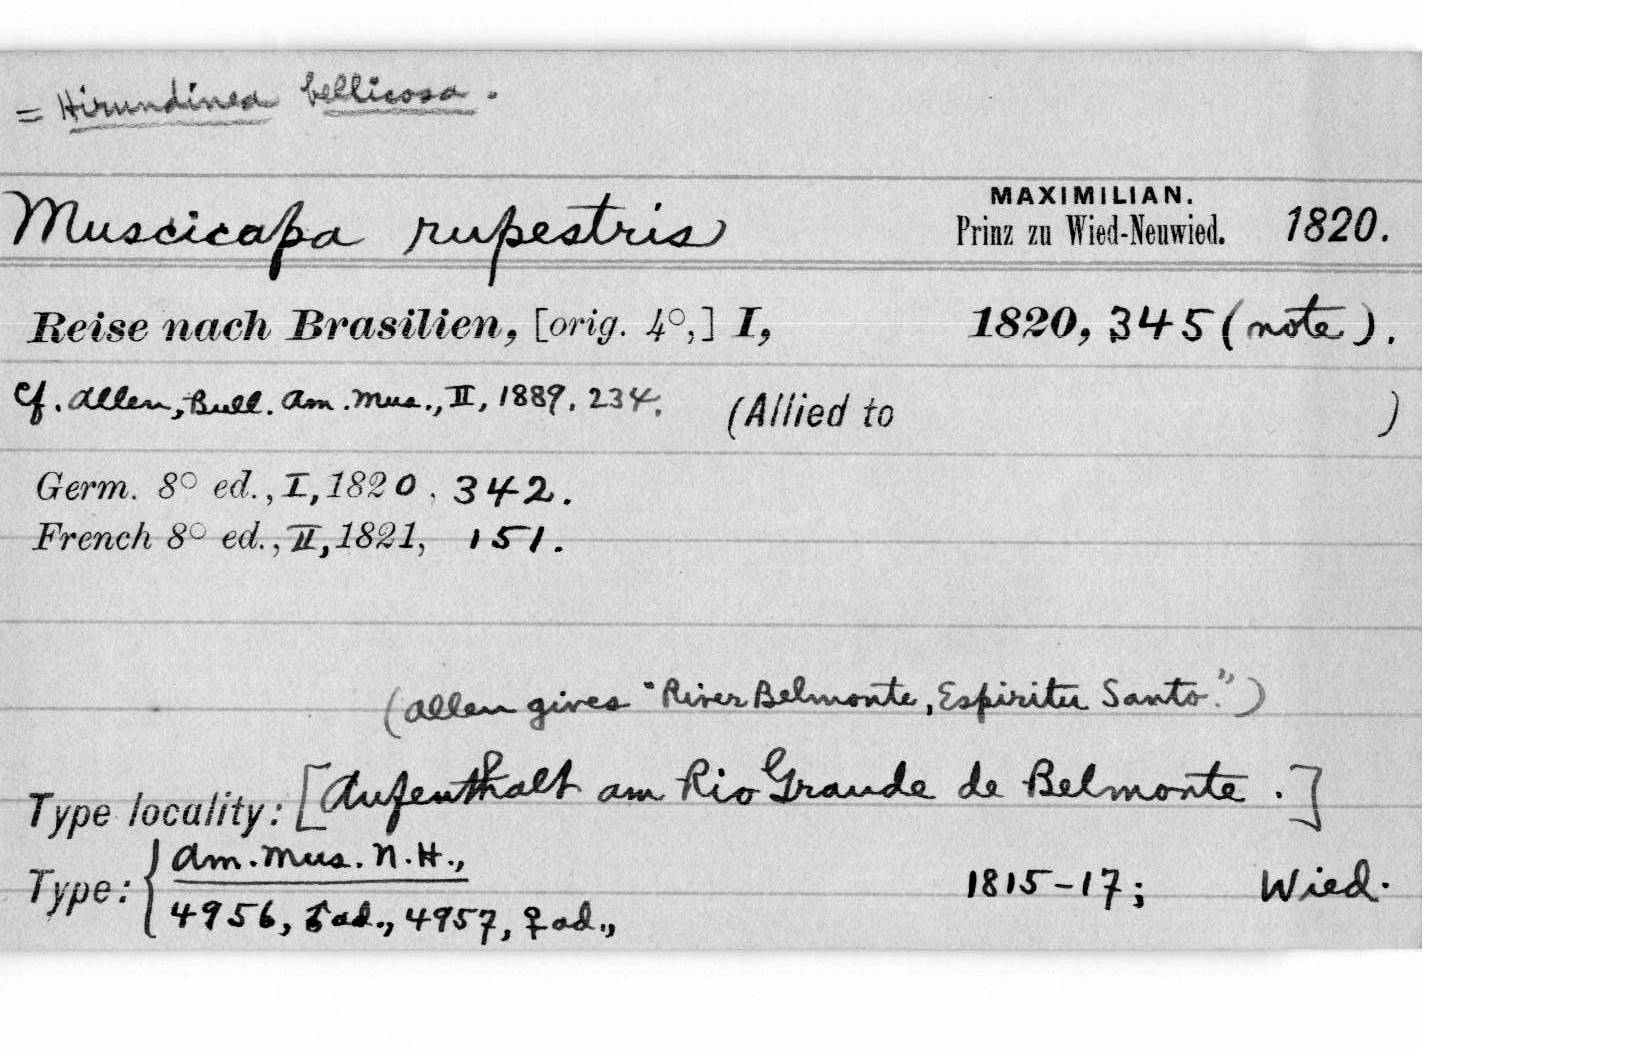 = Hirundinea bellicosa.
Muscicapa rupestris MAXIMILIAN. Prinz zu Wied-Neuwied. 1820.
Reise nach Brasilien, [orig. 4°,] I, 1820, 345 (note).
Cf. Allen, Bull. Am. Mus., II, 1889, 234. (Allied to )
Germ. 8° ed., I, 1820, 342.
French 8° ed., II, 1821, 151.
(Allen gives "River Belmonte, Espiritu Santo.")
Type locality: [Aufenthalt am Rio Grande de Belmonte.]
Type: { Am. Mus. N.H.,
4956, ♂ ad., 4957, ♀ ad., 1815-17; Wied.